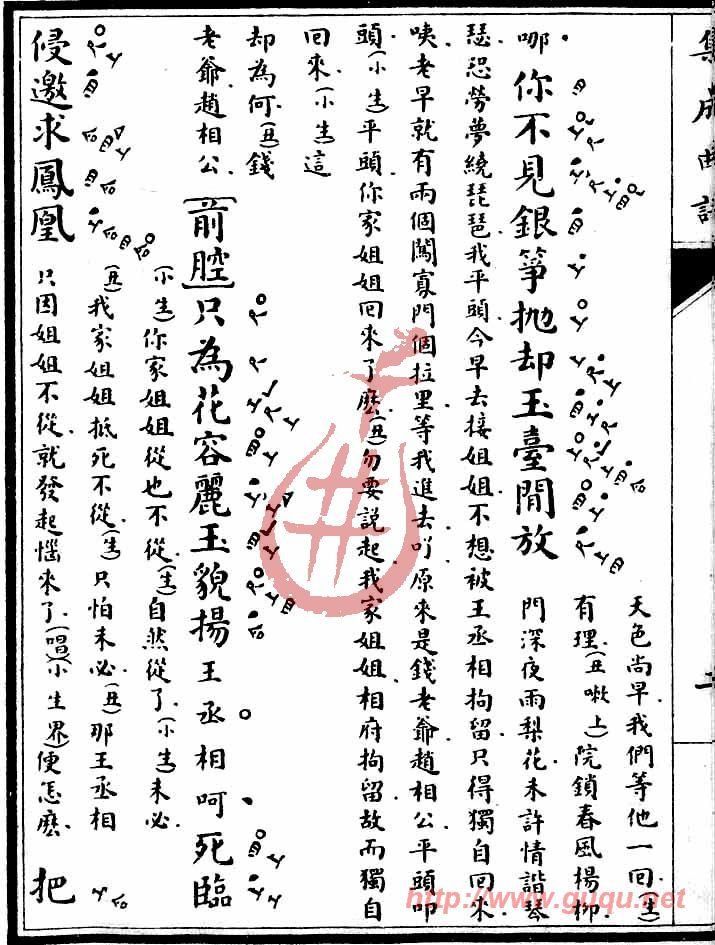 集成曲譜
二
哪你不見銀箏拋却玉臺閒放
天色尚早我們等他一回(生)
有理(丑嗽上)院鎖春風楊柳
門深夜雨梨花未許情諧琴
瑟恐勞夢繞琵琶我平頭今早去接姐姐不想被王丞相拘留只得獨自回來
咦老早就有兩個闖寡門個拉里等我進去吖原來是錢老爺趙相公平頭叩
頭(小生)平頭你家姐姐回來了麽(丑)勿要說起我家姐姐相府拘留故而獨自
回來(小生)這
却為何(丑)錢
老爺趙相公
[前腔]只為花容麗玉貌揚王丞相呵死臨
侵邀求鳳凰
(小生)你家姐姐從也不從(生)自然從了(小生)未必
(丑)我家姐姐抵死不從(生)只怕未必(丑)那王丞相
只因姐姐不從就發起惱來了(唱)(小生界)便怎麽
把
http://www.guqu.net